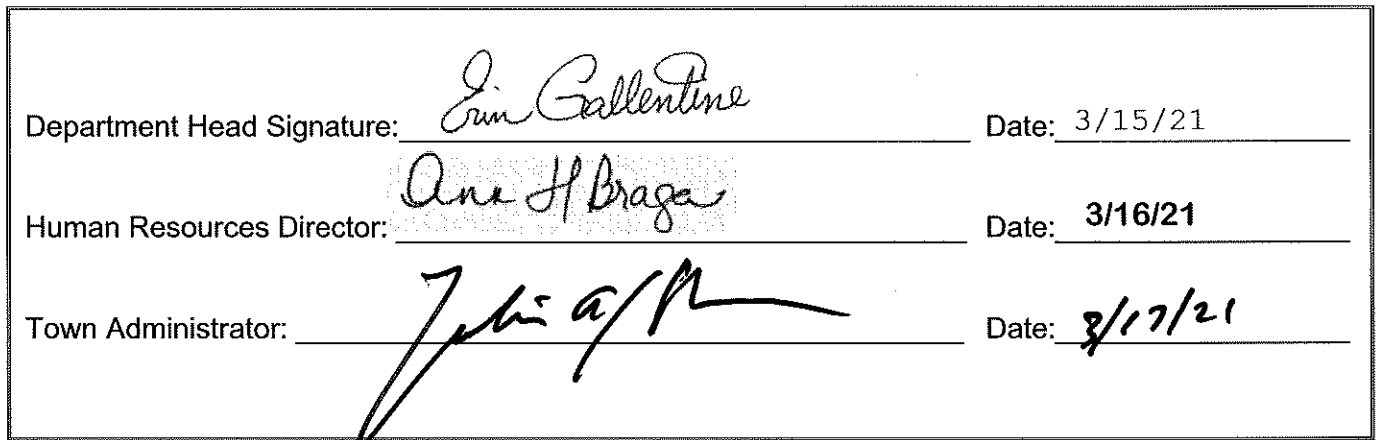 Department Head Signature: Erin Gallentine Date: 3/15/21
Human Resources Director: Ana H Braga Date: 3/16/21
Town Administrator: Date: 3/17/21